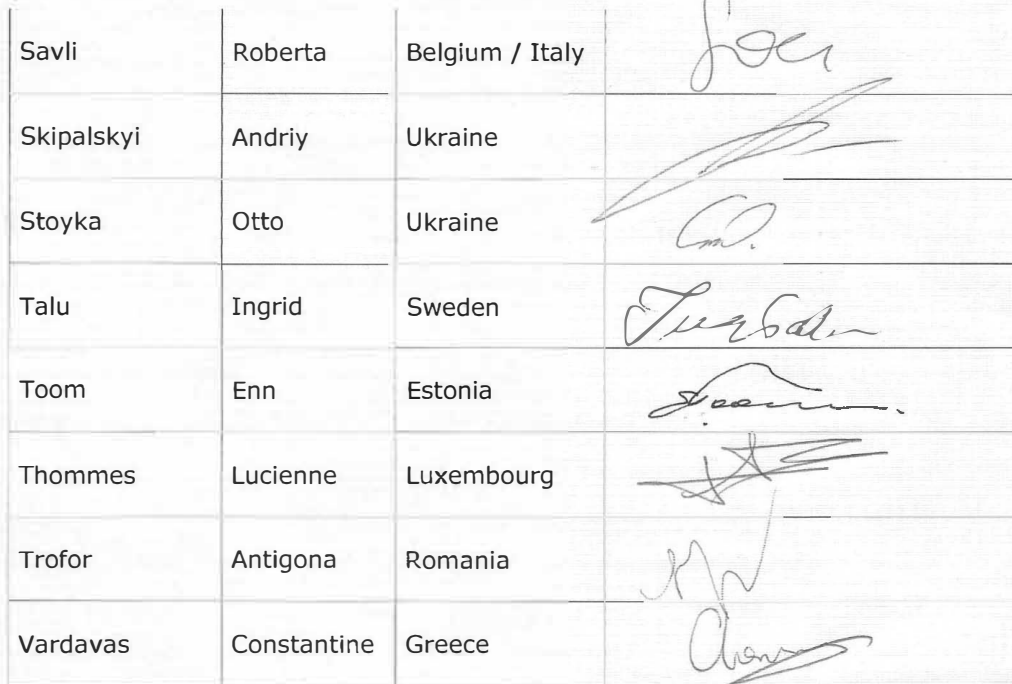 Savli Roberta Belgium / Italy
Skipalskyi Andriy Ukraine
Stoyka Otto Ukraine
Talu Ingrid Sweden
Toom Enn Estonia
Thommes Lucienne Luxembourg
Trofor Antigona Romania
Vardavas Constantine Greece